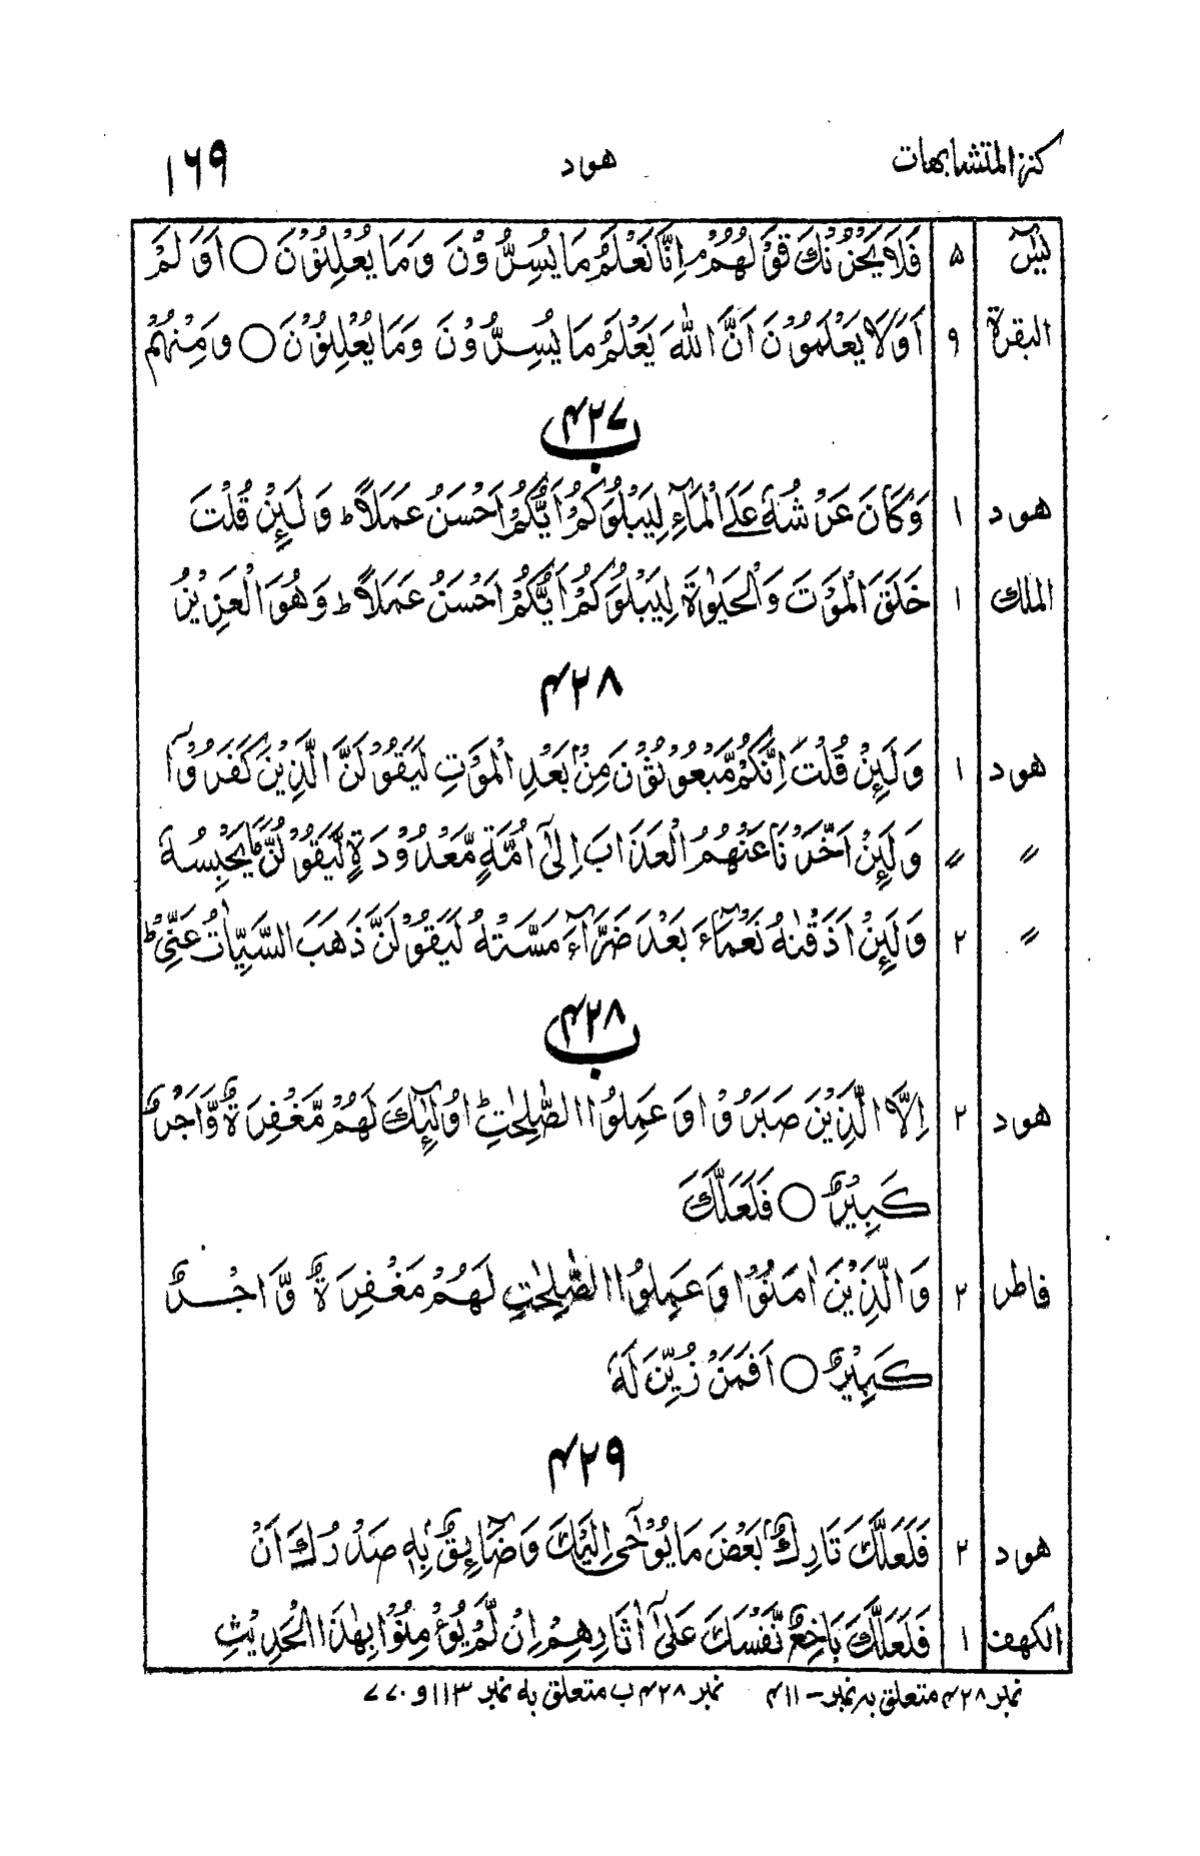 كنز المتشابهات هود ۱۶۹
يٰسٓ ۵ فَلَا يَحْزُنْكَ قَوْلُهُمْ ۘ اِنَّا نَعْلَمُ مَا يُسِرُّوْنَ وَمَا يُعْلِنُوْنَ ○ اَوَلَمْ
البقرة ۹ اَوَلَا يَعْلَمُوْنَ اَنَّ اللّٰهَ يَعْلَمُ مَا يُسِرُّوْنَ وَمَا يُعْلِنُوْنَ ○ وَمِنْهُمْ
۴۲۷ ب
هود ۱ وَكَانَ عَرْشُهٗ عَلَى الْمَآءِ لِيَبْلُوَكُمْ اَيُّكُمْ اَحْسَنُ عَمَلًا ؕ وَلَئِنْ قُلْتَ
الملك ۱ خَلَقَ الْمَوْتَ وَالْحَيٰوةَ لِيَبْلُوَكُمْ اَيُّكُمْ اَحْسَنُ عَمَلًا ؕ وَهُوَ الْعَزِيْزُ
۴۲۸
هود ۱ وَلَئِنْ قُلْتَ اِنَّكُمْ مَّبْعُوْثُوْنَ مِنْۢ بَعْدِ الْمَوْتِ لَيَقُوْلَنَّ الَّذِيْنَ كَفَرُوْٓا
〃 〃 وَلَئِنْ اَخَّرْنَا عَنْهُمُ الْعَذَابَ اِلٰٓى اُمَّةٍ مَّعْدُوْدَةٍ لَّيَقُوْلُنَّ مَا يَحْبِسُهٗ
〃 ۲ وَلَئِنْ اَذَقْنٰهُ نَعْمَآءَ بَعْدَ ضَرَّآءَ مَسَّتْهُ لَيَقُوْلَنَّ ذَهَبَ السَّيِّاٰتُ عَنِّيْ ؕ
۴۲۸ ب
هود ۲ اِلَّا الَّذِيْنَ صَبَرُوْا وَعَمِلُوا الصّٰلِحٰتِ ؕ اُولٰٓئِكَ لَهُمْ مَّغْفِرَةٌ وَّاَجْرٌ
كَبِيْرٌ ○ فَلَعَلَّكَ
فاطر ۲ وَالَّذِيْنَ اٰمَنُوْا وَعَمِلُوا الصّٰلِحٰتِ لَهُمْ مَغْفِرَةٌ وَّاَجْرٌ
كَبِيْرٌ ○ اَفَمَنْ زُيِّنَ لَهٗ
۴۲۹
هود ۲ فَلَعَلَّكَ تَارِكٌۢ بَعْضَ مَا يُوْحٰٓى اِلَيْكَ وَضَآئِقٌۢ بِهٖ صَدْرُكَ اَنْ
الكهف ۱ فَلَعَلَّكَ بَاخِعٌ نَّفْسَكَ عَلٰٓى اٰثَارِهِمْ اِنْ لَّمْ يُؤْمِنُوْا بِهٰذَا الْحَدِيْثِ
نمبر ۴۲۸ متعلق بہ نمبر - ۴۱۱ نمبر ۴۲۸ ب متعلق بہ نمبر ۱۱۳ و ۷۷۰